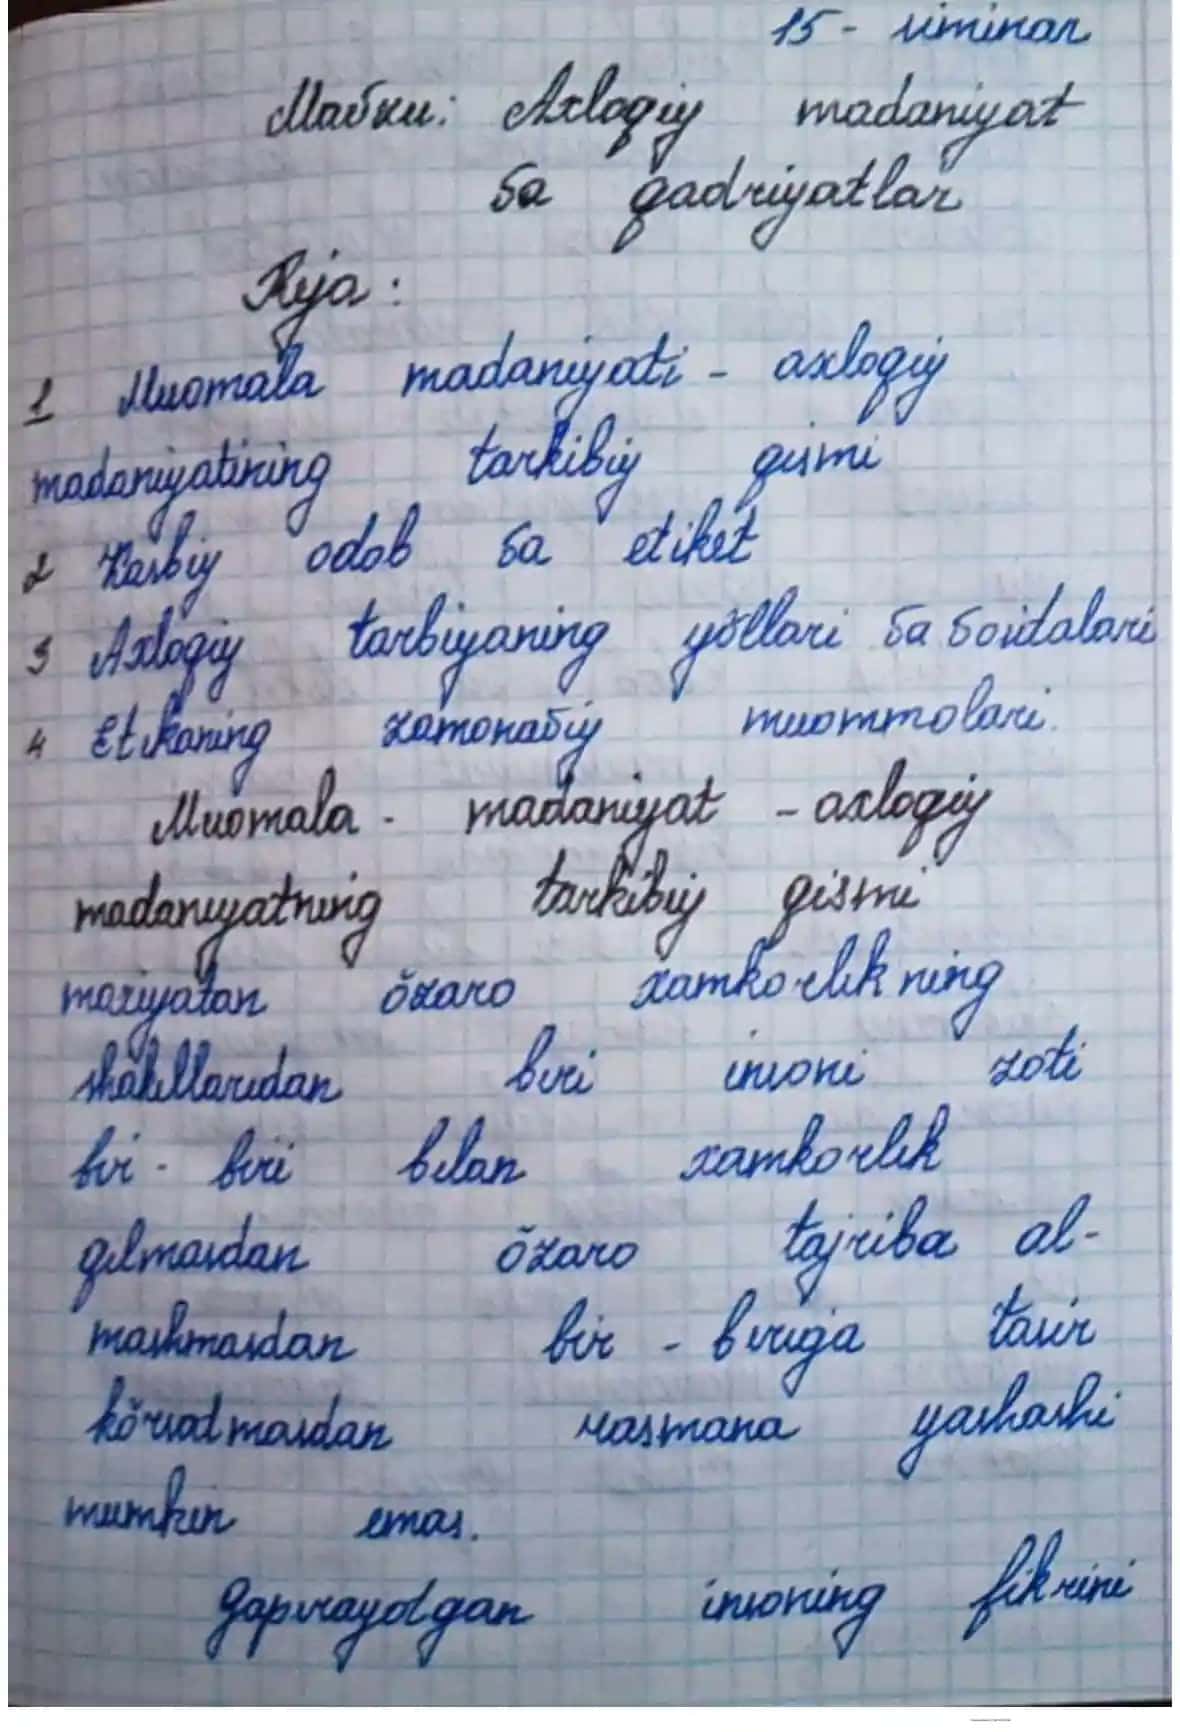 15 - siminar
Mavzu: Axloqiy madaniyat
va qadriyatlar
Reja:
1 Muomala madaniyati - axloqiy
madaniyatining tarkibiy qismi
2 Kasbiy odob va etiket
3 Axloqiy tarbiyaning yŏllari va voidalari
4 Etikaning zamonaviy muommolari.
Muomala - madaniyat - axloqiy
madaniyatning tarkibiy qismi
moxiyatan ŏzaro xamkorlikning
shakllaridan biri insoni zoti
bir - biri bilan xamkorlik
qilmasdan ŏzaro tajriba al-
mashmasdan bir - biriga tasir
kŏrsatmasdan rasmana yashashi
mumkin emas.
gapirayotgan insoning fikrini